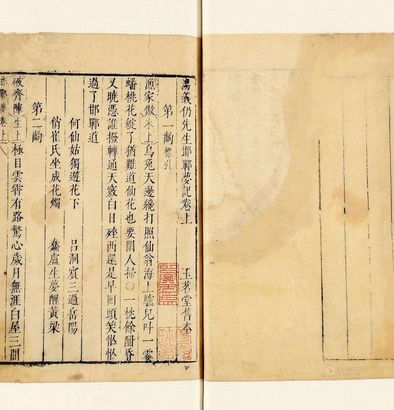 湯義仍先生邯鄲夢記卷上
玉茗堂舊本
第一齣 標引
漁家傲末上烏兔天邊纔打照仙翁海上驢兒叫一霎
蟠桃花綻了猶難道仙花也要閒人掃○一枕餘酣昏
又曉憑誰撥轉通天竅白日矬西還是早回頭笑忙忙
過了邯鄲道
何仙姑獨遊花下 呂洞賓三過岳陽
俏崔氏坐成花燭 蠢盧生夢醒黃粱
第二齣
破齊陣生上極目雲霄有路驚心歲月無涯白屋三間